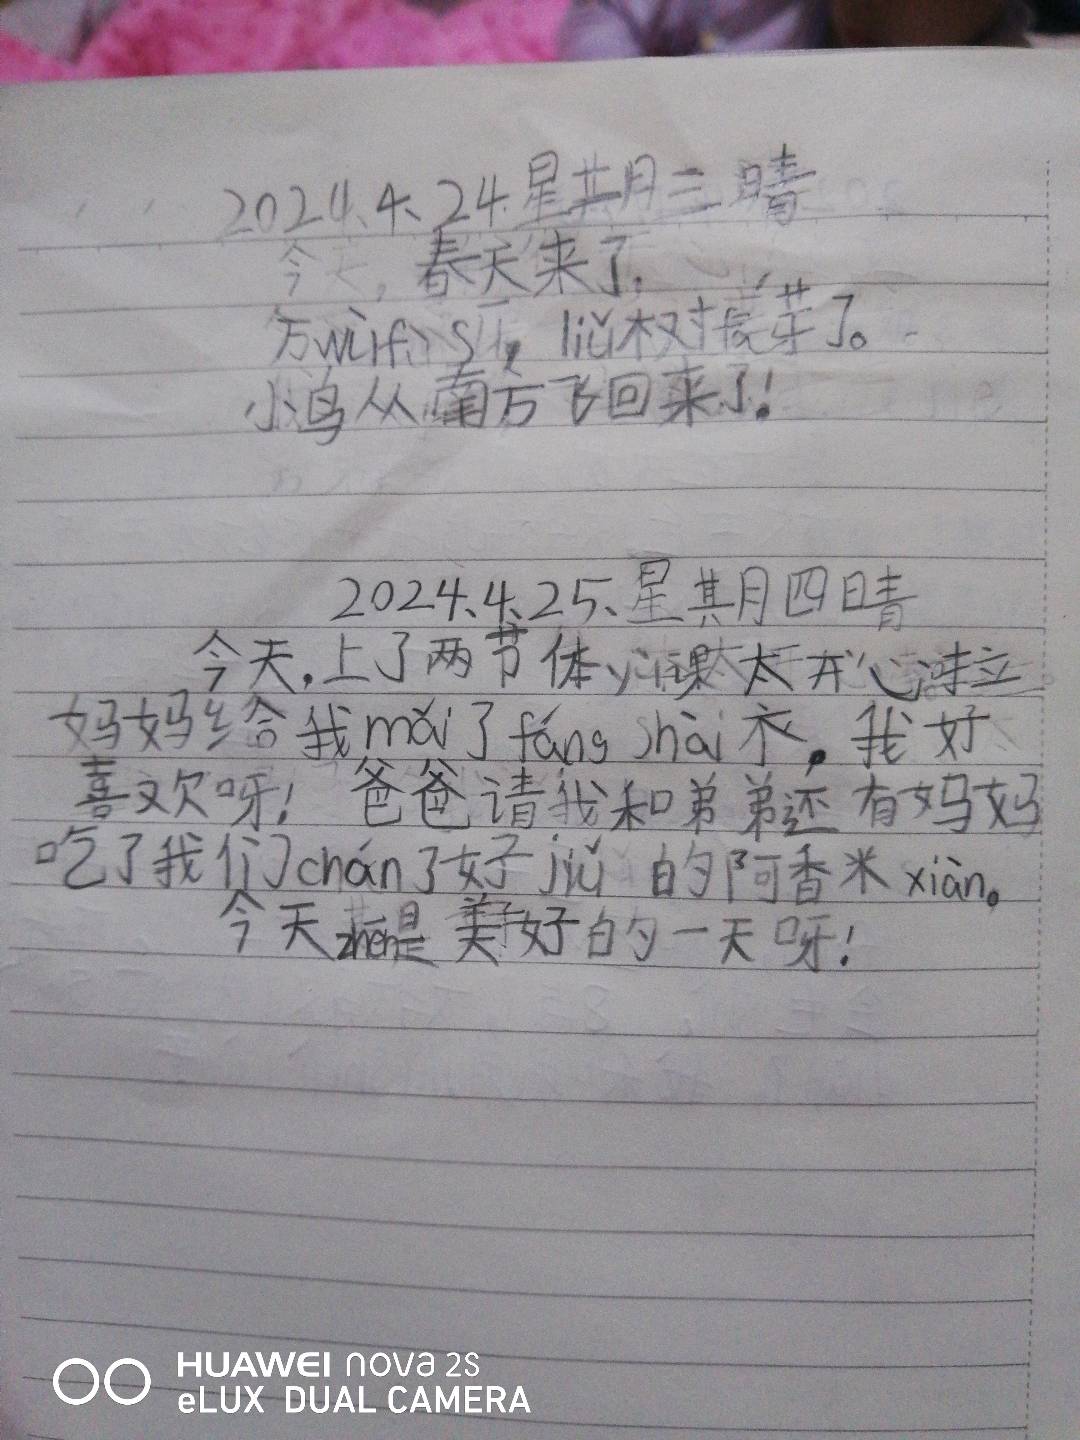 2024.4.24.星期三 晴
今天,春天来了,
万wù fù sū,liǔ树长芽了。
小鸟从南方飞回来了!
2024.4.25.星期四晴
今天,上了两节体yù课太开心啦
妈妈给我mǎi了fáng shài衣,我好
喜欢呀!爸爸请我和弟弟还有妈妈
吃了我们chán了好jiǔ的阿香米xiàn。
今天zhēn是美好的一天呀!
HUAWEI nova 2s
eLUX DUAL CAMERA